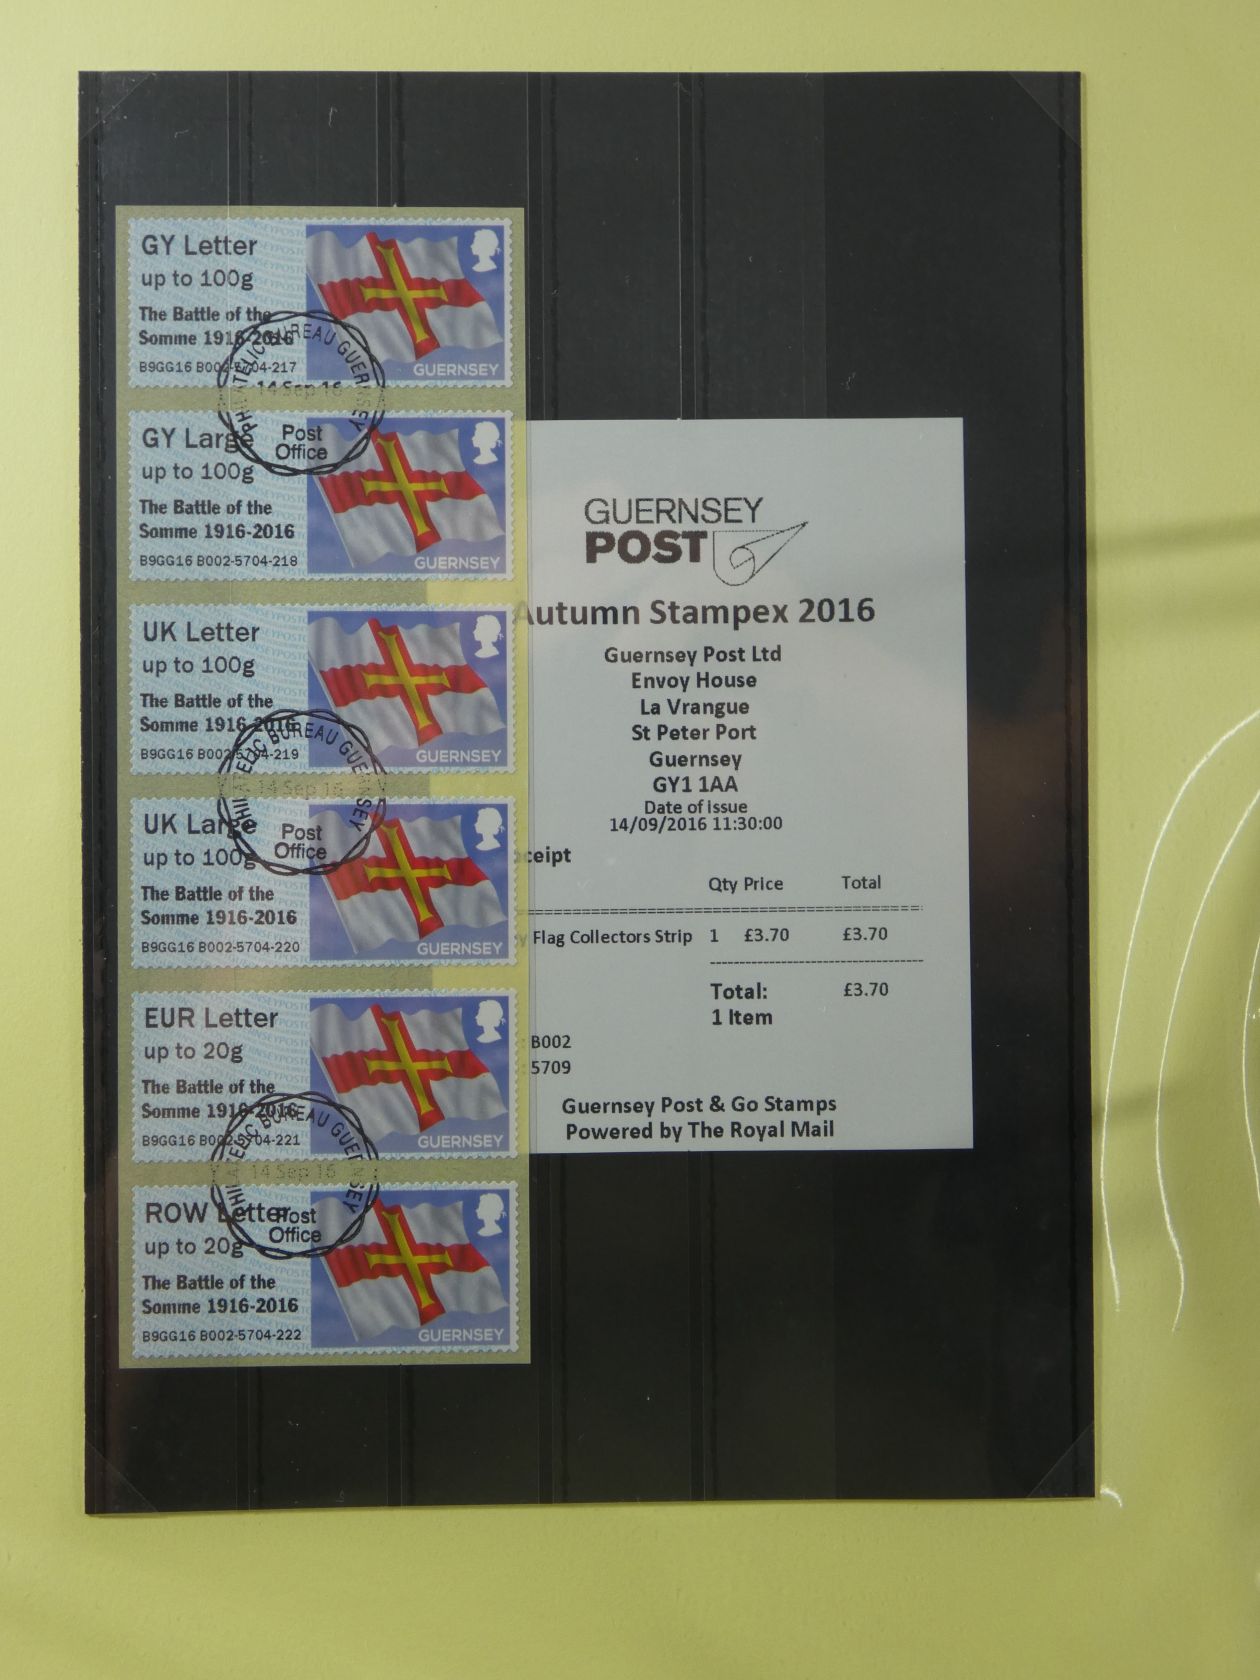 GY Letter
up to 100g
The Battle of the
Somme 1916-2016
B9GG16 B002-5704-217
GUERNSEY
PHILATELIC BUREAU GUERNSEY
14 Sep 16
Post
Office
GY Large
up to 100g
The Battle of the
Somme 1916-2016
B9GG16 B002-5704-218
GUERNSEY
UK Letter
up to 100g
The Battle of the
Somme 1916-2016
B9GG16 B002-5704-219
GUERNSEY
PHILATELIC BUREAU GUERNSEY
14 Sep 16
Post
Office
UK Large
up to 100g
The Battle of the
Somme 1916-2016
B9GG16 B002-5704-220
GUERNSEY
EUR Letter
up to 20g
The Battle of the
Somme 1916-2016
B9GG16 B002-5704-221
GUERNSEY
PHILATELIC BUREAU GUERNSEY
14 Sep 16
Post
Office
ROW Letter
up to 20g
The Battle of the
Somme 1916-2016
B9GG16 B002-5704-222
GUERNSEY
GUERNSEY
POST
Autumn Stampex 2016
Guernsey Post Ltd
Envoy House
La Vrangue
St Peter Port
Guernsey
GY1 1AA
Date of issue
14/09/2016 11:30:00
ceipt
Qty Price Total
Flag Collectors Strip 1 £3.70 £3.70
Total: £3.70
1 Item
B002
5709
Guernsey Post & Go Stamps
Powered by The Royal Mail